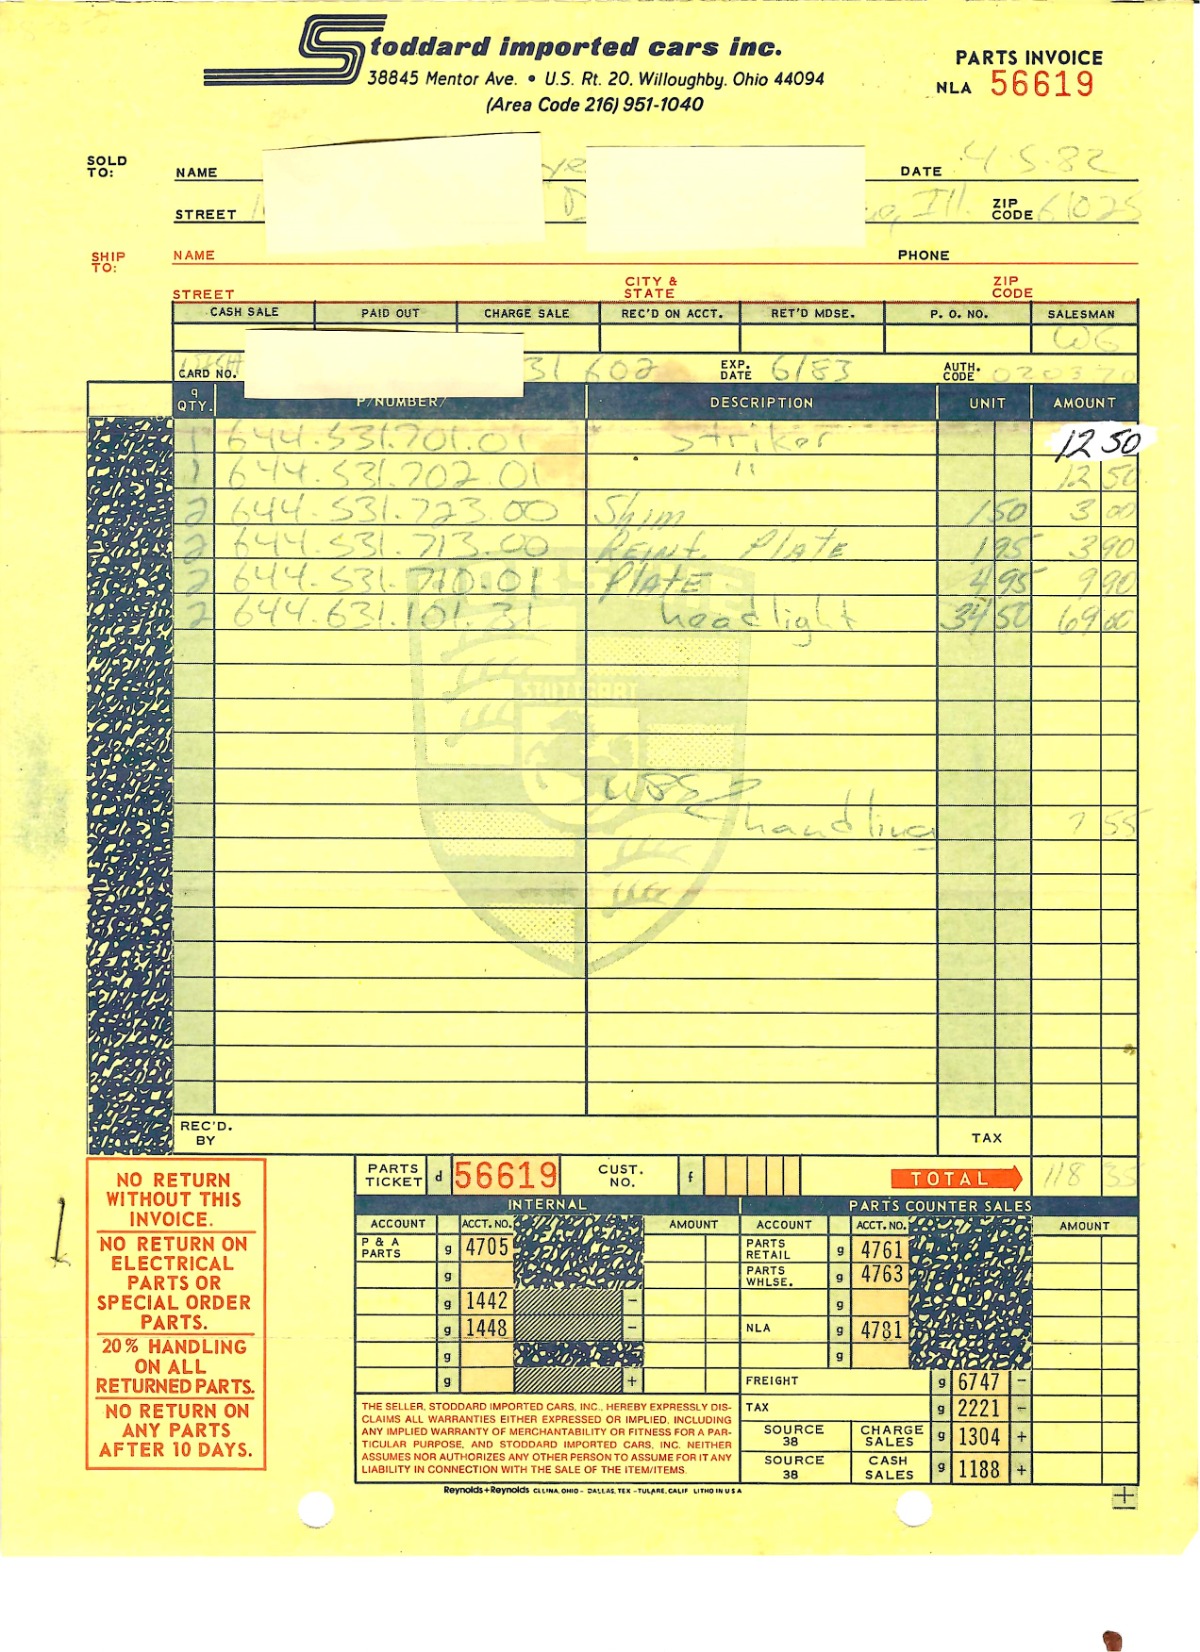 Stoddard imported cars inc.
38845 Mentor Ave. • U.S. Rt. 20. Willoughby. Ohio 44094
(Area Code 216) 951-1040
PARTS INVOICE
NLA 56619
SOLD TO: NAME DATE 4.5.82
STREET Ill. ZIP CODE 61025
SHIP TO: NAME PHONE
STREET CITY & STATE ZIP CODE
CASH SALE PAID OUT CHARGE SALE REC'D ON ACCT. RET'D MDSE. P. O. NO. SALESMAN
WG
CARD NO. 31 602 EXP. DATE 6/83 AUTH. CODE 020370
q QTY. P/NUMBER/ DESCRIPTION UNIT AMOUNT
1 644.531.701.01 Striker 12 50
1 644.531.702.01 " 12 50
2 644.531.723.00 Shim 1 50 3 00
2 644.531.713.00 Reinf. Plate 1 95 3 90
2 644.531.710.01 Plate 4 95 9 90
2 644.631.101.31 headlight 34 50 69 00
STUTTGART
handling 7 55
REC'D. BY TAX
PARTS TICKET d 56619 CUST. NO. f TOTAL 118 35
INTERNAL PARTS COUNTER SALES
ACCOUNT ACCT. NO. AMOUNT ACCOUNT ACCT. NO. AMOUNT
P & A PARTS g 4705 PARTS RETAIL g 4761
g PARTS WHLSE. g 4763
g 1442 − g
g 1448 − NLA g 4781
g g
g + FREIGHT g 6747 −
TAX g 2221 −
SOURCE 38 CHARGE SALES g 1304 +
SOURCE 38 CASH SALES g 1188 +
NO RETURN
WITHOUT THIS
INVOICE.
NO RETURN ON
ELECTRICAL
PARTS OR
SPECIAL ORDER
PARTS.
20% HANDLING
ON ALL
RETURNED PARTS.
NO RETURN ON
ANY PARTS
AFTER 10 DAYS.
THE SELLER, STODDARD IMPORTED CARS, INC., HEREBY EXPRESSLY DIS-
CLAIMS ALL WARRANTIES EITHER EXPRESSED OR IMPLIED, INCLUDING
ANY IMPLIED WARRANTY OF MERCHANTABILITY OR FITNESS FOR A PAR-
TICULAR PURPOSE, AND STODDARD IMPORTED CARS, INC. NEITHER
ASSUMES NOR AUTHORIZES ANY OTHER PERSON TO ASSUME FOR IT ANY
LIABILITY IN CONNECTION WITH THE SALE OF THE ITEM/ITEMS.
Reynolds+Reynolds CELINA, OHIO - DALLAS, TEX - TULARE, CALIF LITHO IN U S A
+